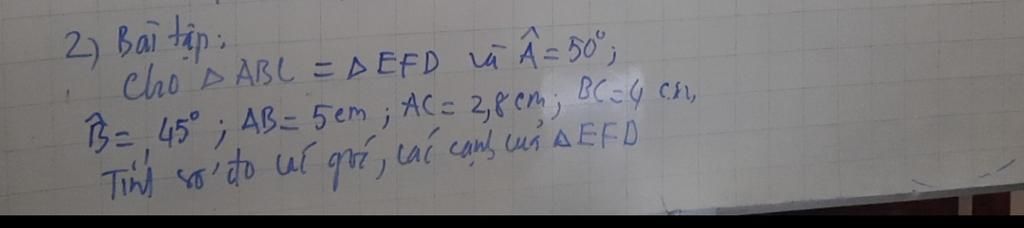 2) Bài tập:
Cho △ ABC = △ EFD và Â = 50°;
B̂ = 45°; AB = 5cm; AC = 2,8cm; BC = 4 cm,
Tính số đo các góc, các cạnh của △ EFD